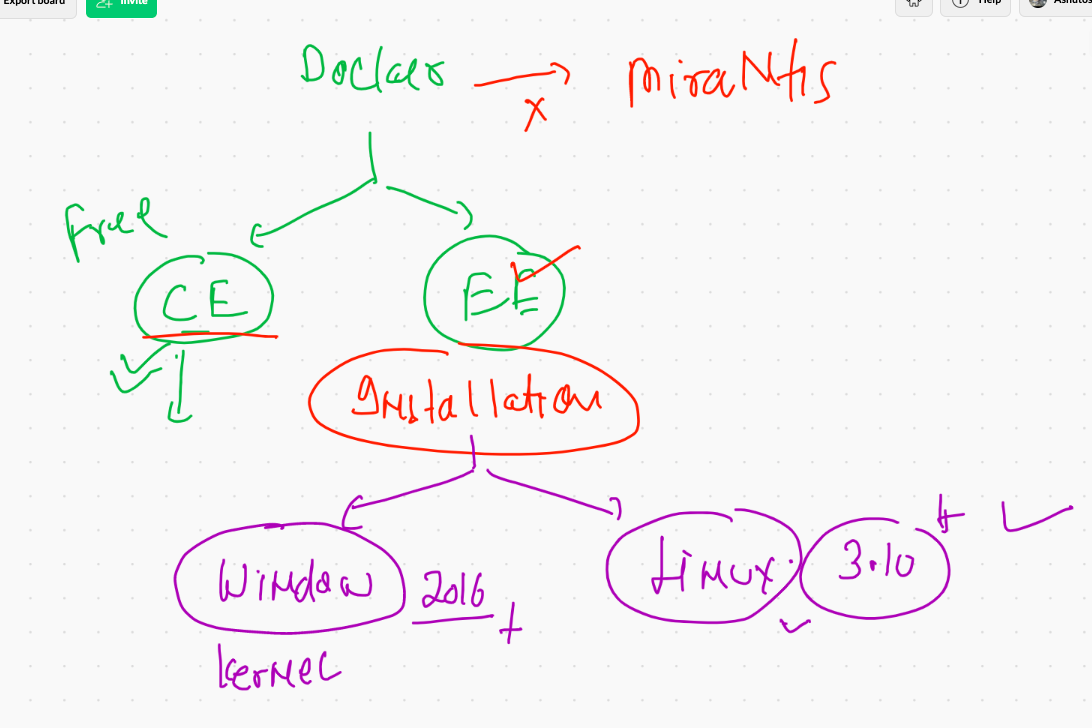 Export board
Invite
Help
Docker → MiraNtis
x
Free
CE
EE
Installation
Window 2016 +
Linux 3.10 +
kernel